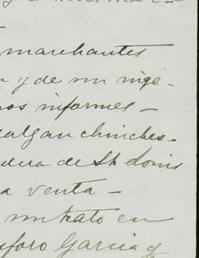 marchantes
y de un inge-
nos informes -
algan chinches -
dera de St Louis
a venta -
un trato en
foro Garcia y